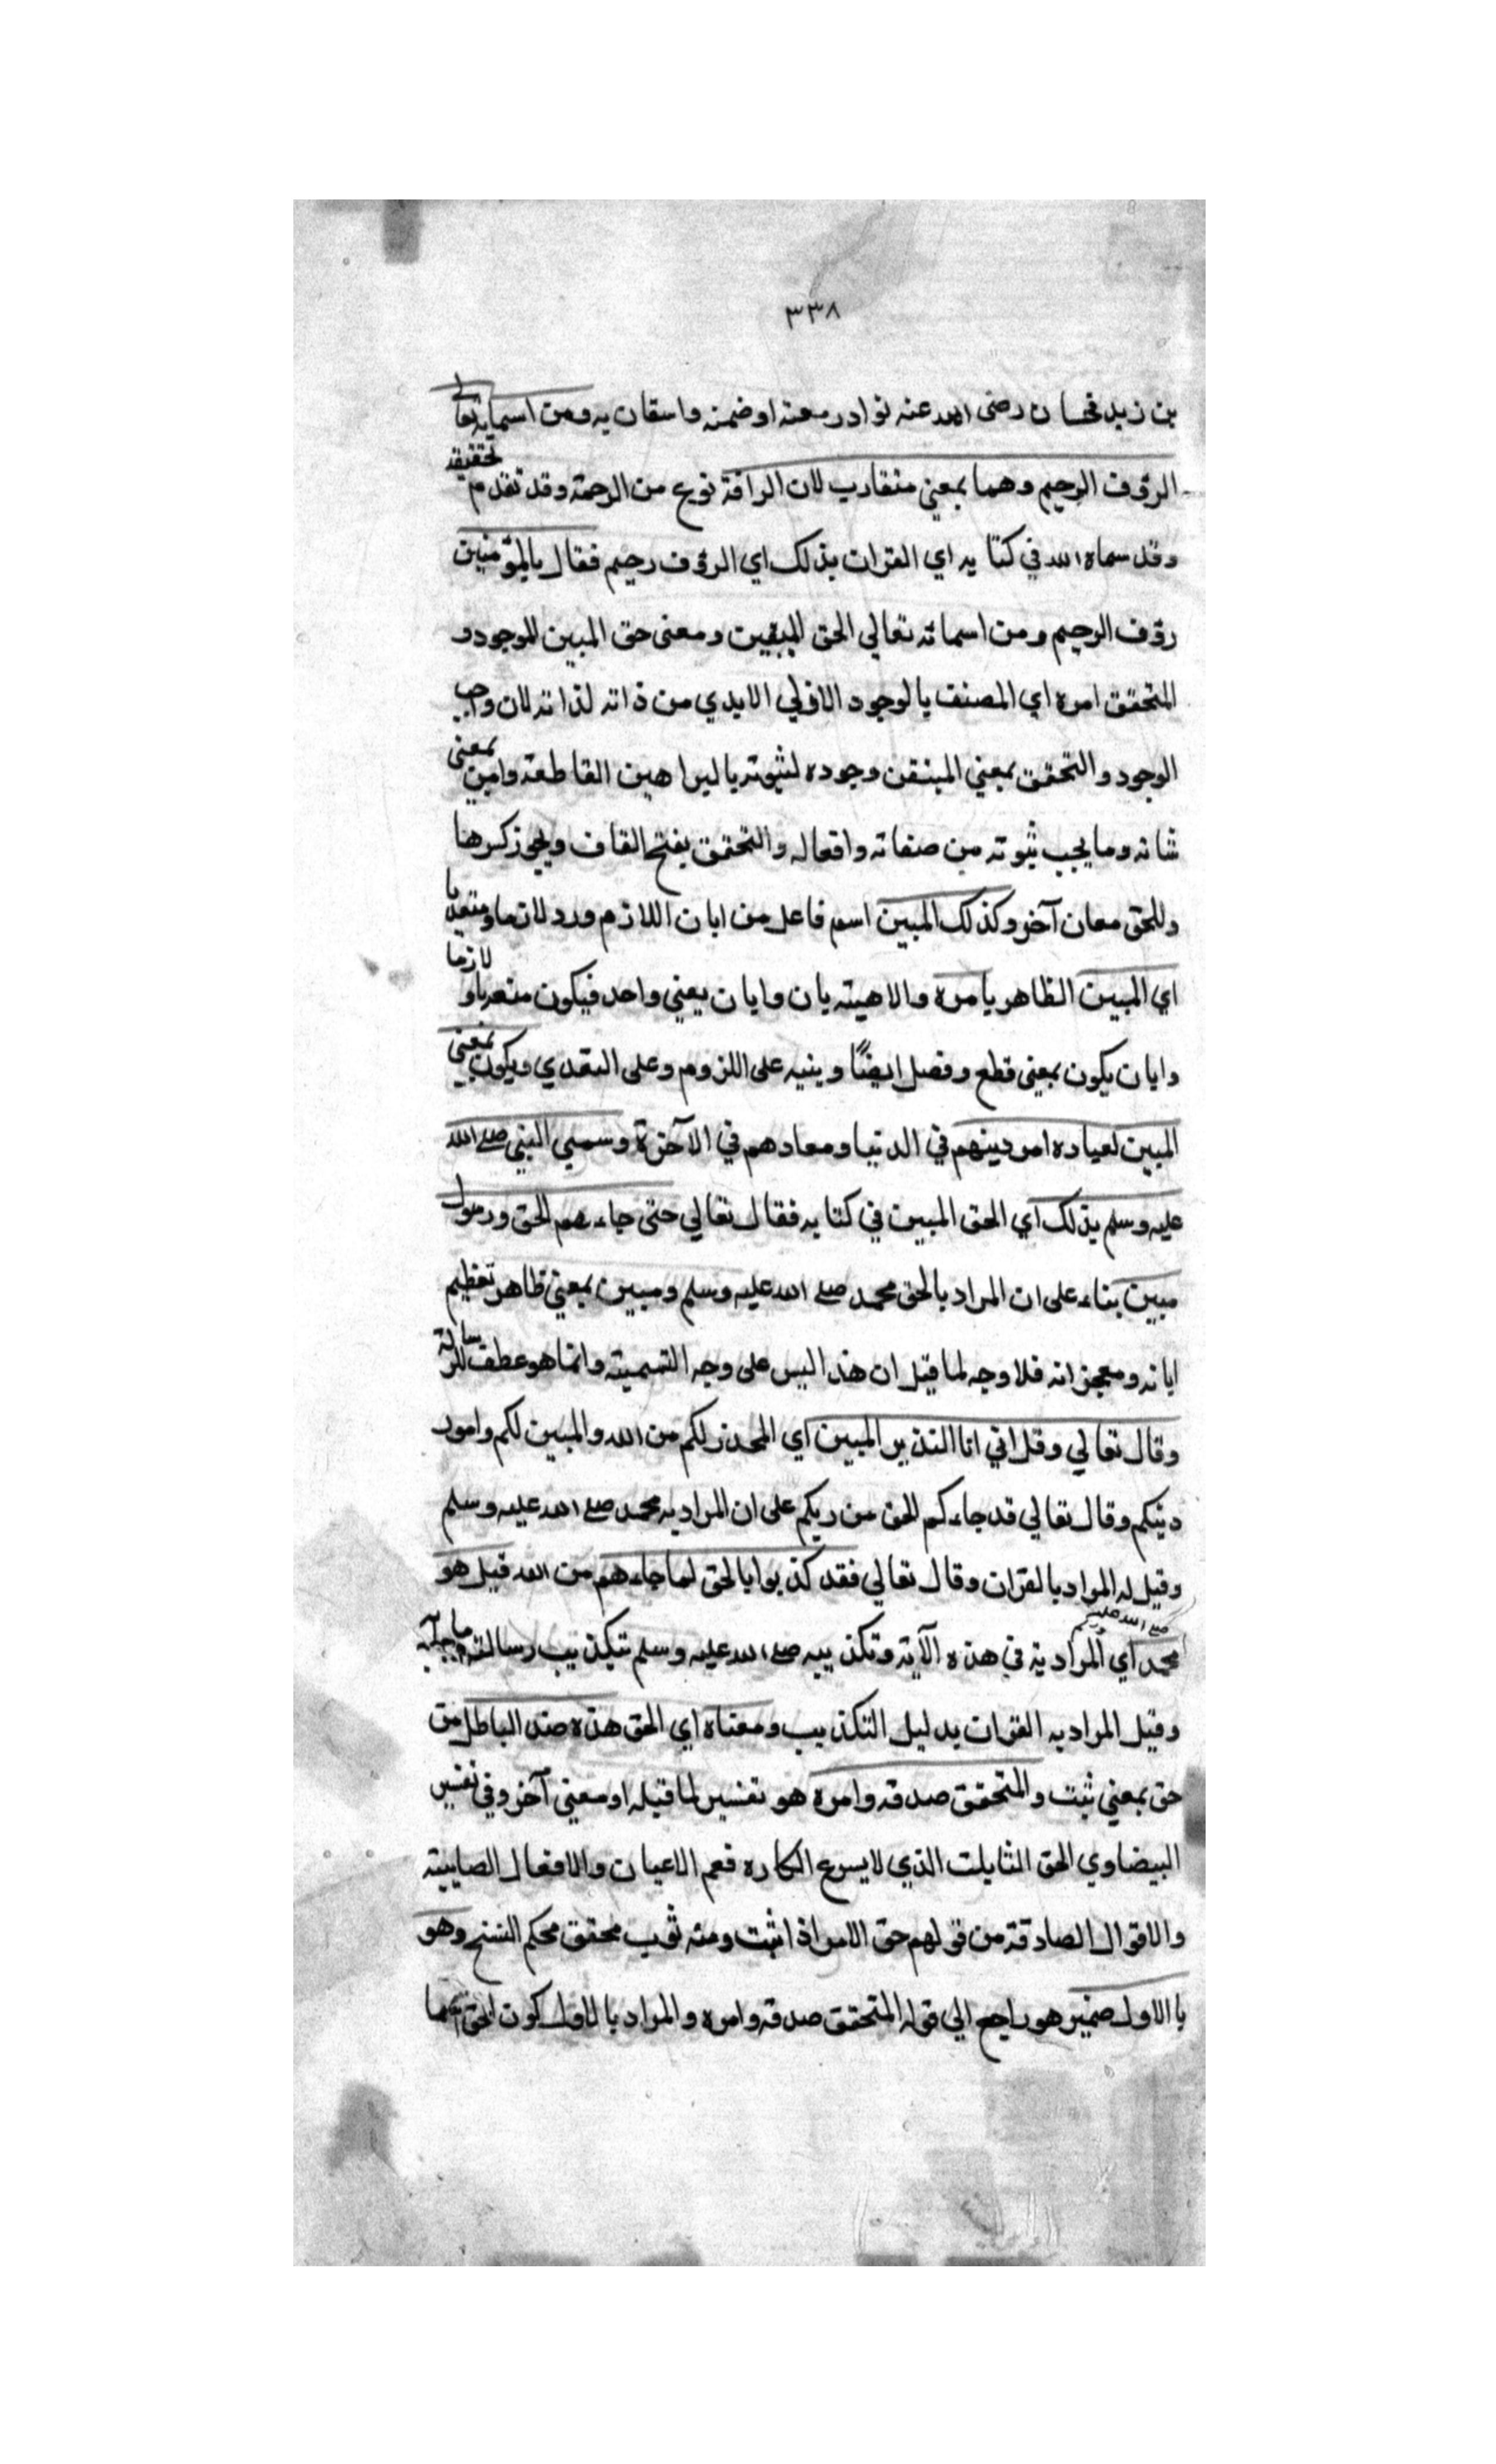 ٣٣٨
بن زيد فحسان رضى الله عنه نوادر معنه اوضمنه واسقان يه ومن اسمايه تعالى
الرؤف الرحيم وهما بمعني متقارب لان الرافة نوع من الرحمة وقد تقدم تحقيقه
وقد سماه الله في كتا يه اي القران بذلك اي الرؤف رحيم فقال بالمؤمنين
رؤف الرحيم ومن اسمائه تعالي الحق المبين ومعنى حق المبين الموجود و
المتحقق امره اي المصنف بالوجود الازلي الابدي من ذاته لذاته لان وجب
الوجود والتحقق بمعني المبتقن وجوده لثبوته بالبراهين القاطعة وامين بمعنى
شانه وما يجب ثبوته من صفاته وافعاله والتحقق بفتح القاف ويجوز كسرها
وللحق معان آخر وكذلك المبين اسم فاعل من ابان اللازم ورد لازما ومتعديا
اي المبين الظاهر بامره والاهيته بان وابان بعني واحد فيكون متعديا و لازما
وابان يكون بمعنى قطع وفصل ايضًا وينيه على اللزوم وعلى التعدي ويكون بمعنى
المبين لعباده امر دينهم في الدنيا ومعادهم في الآخرة وسمي النبي صلى الله
عليه وسلم بذلك اي الحق المبين في كتابه فقال تعالي حتى جاءهم الحق ورسول
مبين بناء على ان المراد بالحق محمد صلے الله عليه وسلم ومبين بمعني ظاهر تعظيم
اياته ومعجزاته فلا وجه لما قيل ان هذا ليس على وجه التسمية وانما هو عطف للرسالة
وقال تعالي وقل اني انا النذير المبين اي المحذر لكم من الله والمبين لكم وامور
دينكم وقال تعالي قد جاءكم الحق من ربكم على ان المراد به محمد صلے الله عليه وسلم
وقيل له المراد بالقران وقال تعالي فقد كذبوا بالحق لما جاءهم من الله قيل هو
محمد صلے الله عليه وسلم اي المراد به في هذه الآية وتكذيبه صلے الله عليه وسلم بتكذيب رسالته وما جاء به
وقيل المراد به القران بدليل التكذيب ومعناه اي الحق هذه ضد الباطل من
حق بمعني ثبت والمتحقق صدقه وامره هو تفسير لما قبله او معنى آخر وفي تفسير
البيضاوي الحق الثابلت الذي لا يسوع انكاره فعم الاعيان والافعال الصايبة
والاقوال الصادقة من قولهم حق الامر اذا ثبت ومنه ثوب محقق محكم النسج وهو
با الاول ضمير هو راجع الي قوله المتحقق صدقه وامره والمراد بالاول كون الحق